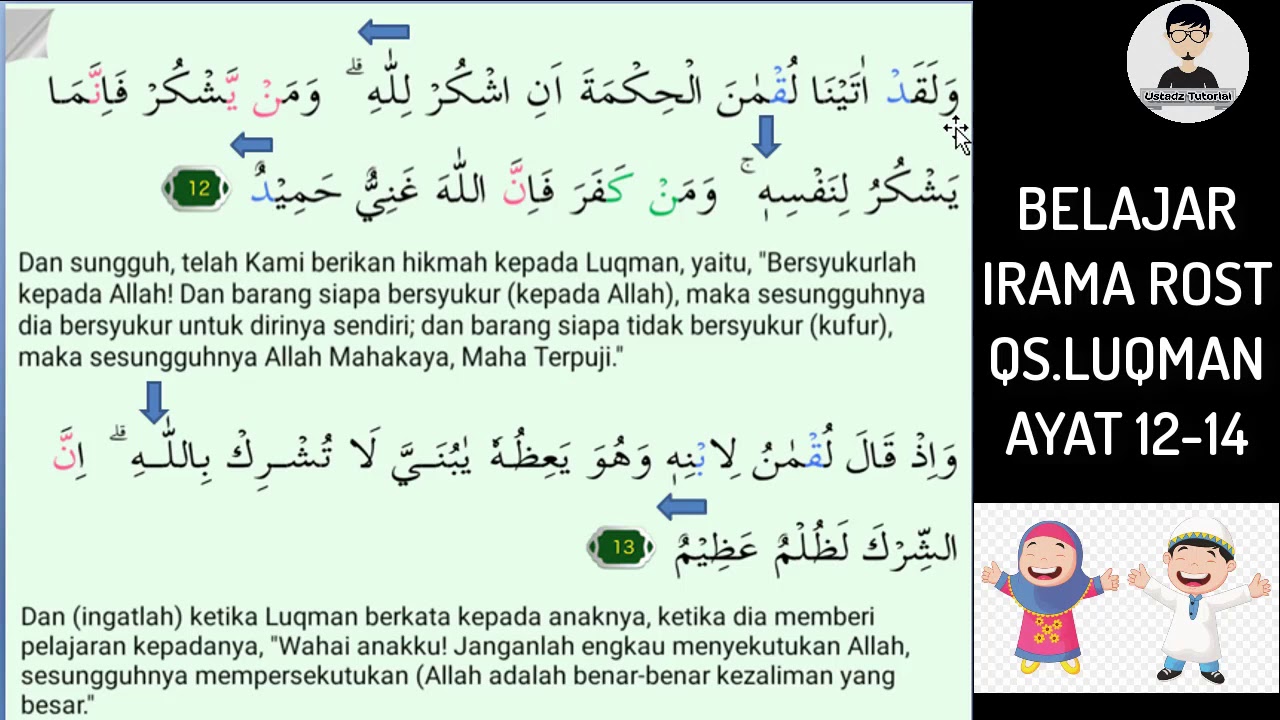 وَلَقَدْ اٰتَيْنَا لُقْمٰنَ الْحِكْمَةَ اَنِ اشْكُرْ لِلّٰهِ ۗ وَمَنْ يَّشْكُرْ فَاِنَّمَا
يَشْكُرُ لِنَفْسِهٖ ۚ وَمَنْ كَفَرَ فَاِنَّ اللّٰهَ غَنِيٌّ حَمِيْدٌ 12
Dan sungguh, telah Kami berikan hikmah kepada Luqman, yaitu, "Bersyukurlah
kepada Allah! Dan barang siapa bersyukur (kepada Allah), maka sesungguhnya
dia bersyukur untuk dirinya sendiri; dan barang siapa tidak bersyukur (kufur),
maka sesungguhnya Allah Mahakaya, Maha Terpuji."
وَاِذْ قَالَ لُقْمٰنُ لِابْنِهٖ وَهُوَ يَعِظُهٗ يٰبُنَيَّ لَا تُشْرِكْ بِاللّٰهِ ۗ اِنَّ
الشِّرْكَ لَظُلْمٌ عَظِيْمٌ 13
Dan (ingatlah) ketika Luqman berkata kepada anaknya, ketika dia memberi
pelajaran kepadanya, "Wahai anakku! Janganlah engkau menyekutukan Allah,
sesungguhnya mempersekutukan (Allah adalah benar-benar kezaliman yang
besar."
Ustadz Tutorial
BELAJAR
IRAMA ROST
QS.LUQMAN
AYAT 12-14